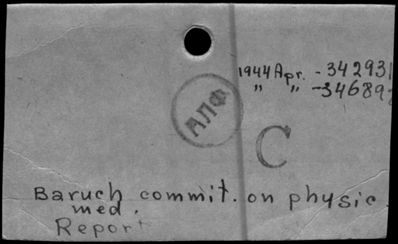 1944 Apr. - 34293
" " - 34689
АПФ
C
Baruch commit. on physic.
med.
Report